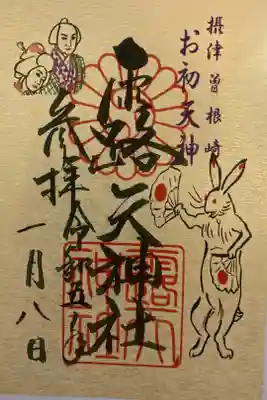 摂津曽根崎
お初天神
露天神社
参拝令和五年
一月八日